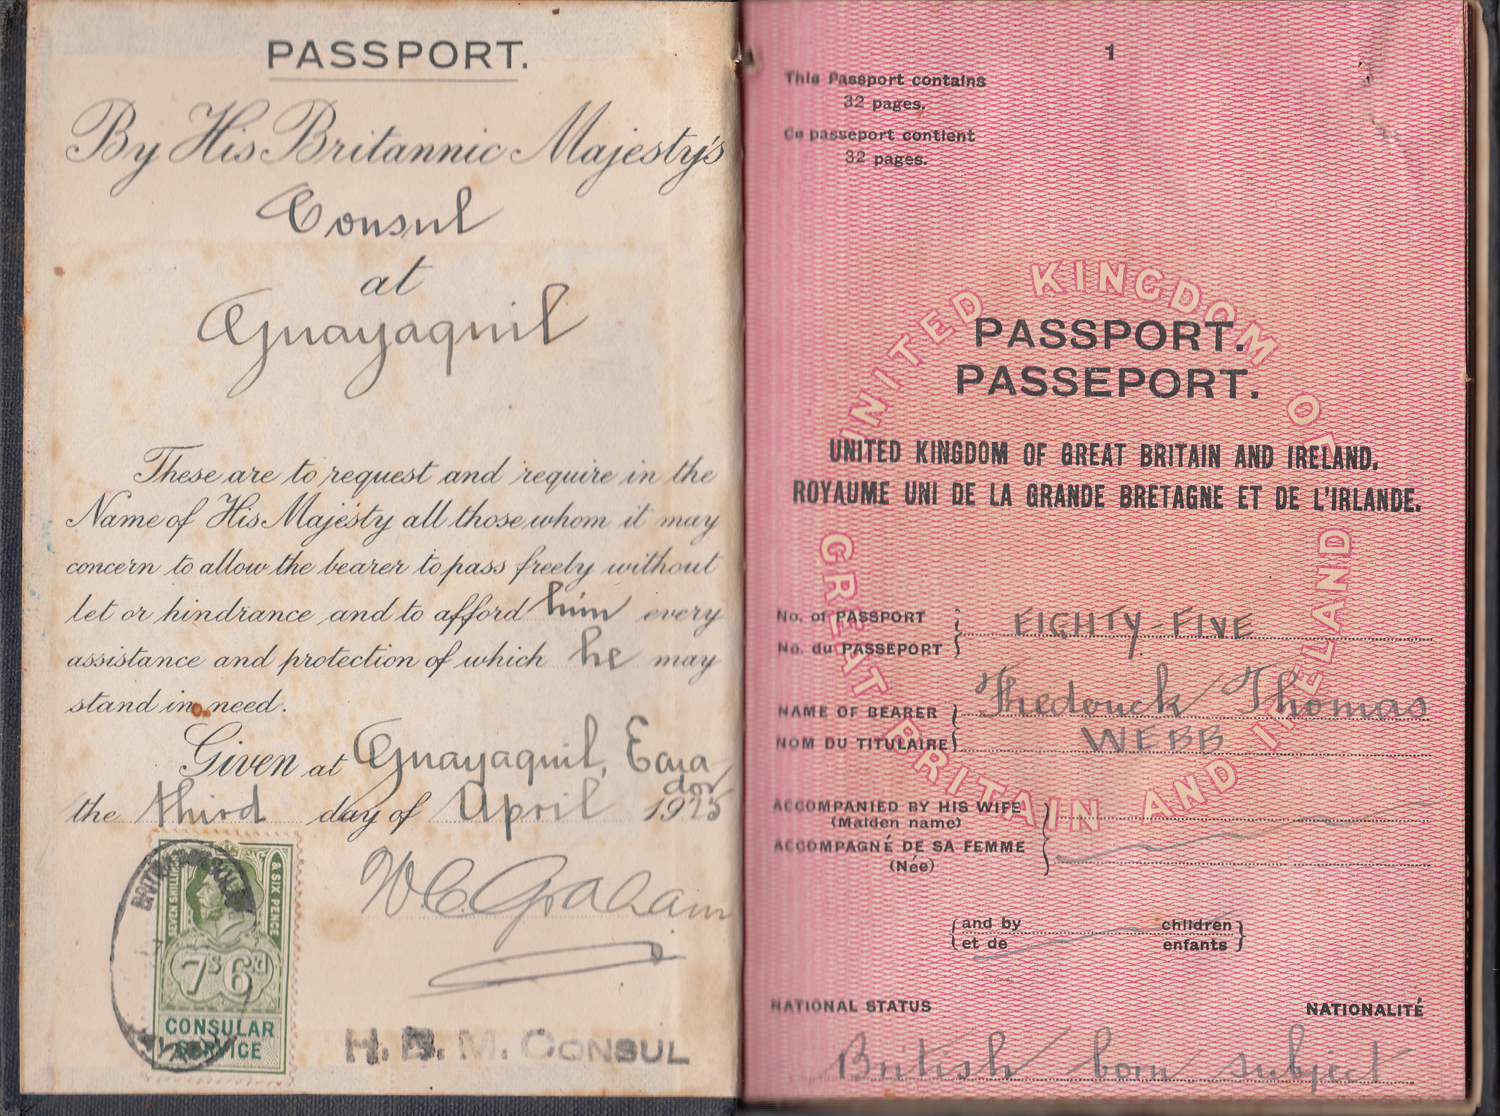 PASSPORT.
By His Britannic Majesty's
Consul
at
Guayaquil
These are to request and require in the
Name of His Majesty all those whom it may
concern to allow the bearer to pass freely without
let or hindrance and to afford him every
assistance and protection of which he may
stand in need.
Given at Guayaquil, Ecua
dor
the third day of April 1925
W C Graham
SEVEN SHILLINGS
& SIX PENCE
7s 6d
CONSULAR
SERVICE
H. B. M. CONSUL
1
This Passport contains
32 pages.
Ce passeport contient
32 pages.
UNITED KINGDOM OF
GREAT BRITAIN AND IRELAND
PASSPORT.
PASSEPORT.
UNITED KINGDOM OF GREAT BRITAIN AND IRELAND.
ROYAUME UNI DE LA GRANDE BRETAGNE ET DE L'IRLANDE.
No. of PASSPORT EIGHTY-FIVE
No. du PASSEPORT
NAME OF BEARER Frederick Thomas
NOM DU TITULAIRE WEBB
ACCOMPANIED BY HIS WIFE
(Maiden name)
ACCOMPAGNÉ DE SA FEMME
(Née)
and by children
et de enfants
NATIONAL STATUS NATIONALITÉ
British born subject